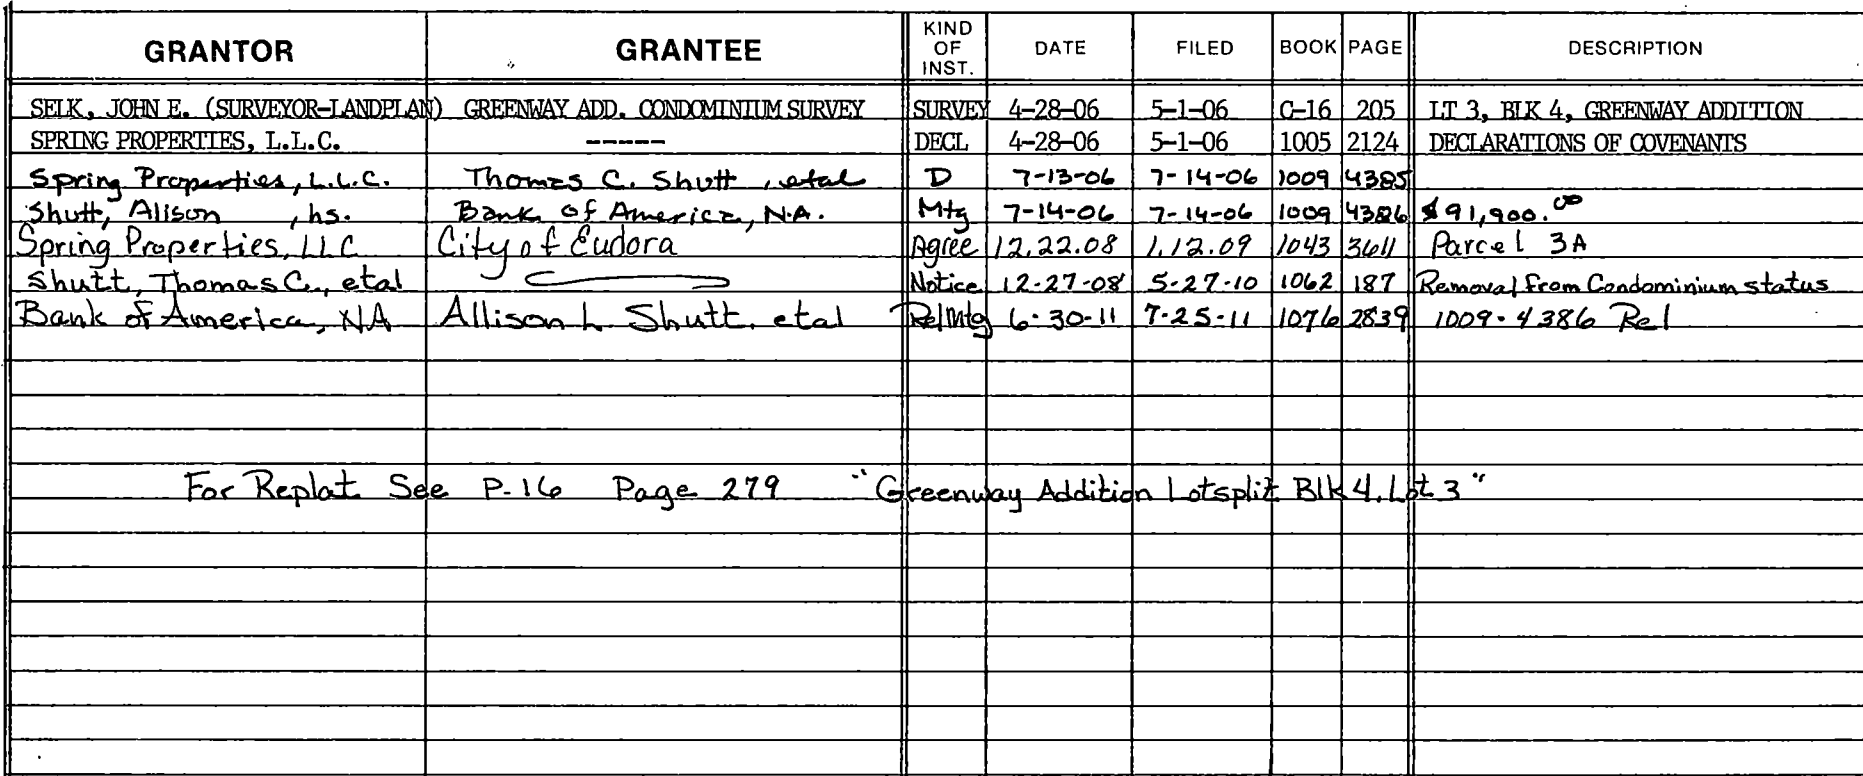 GRANTOR GRANTEE KIND OF INST. DATE FILED BOOK PAGE DESCRIPTION
SELK, JOHN E. (SURVEYOR-LANDPLAN) GREENWAY ADD. CONDOMINIUM SURVEY SURVEY 4-28-06 5-1-06 C-16 205 LT 3, BLK 4, GREENWAY ADDITION
SPRING PROPERTIES, L.L.C. ----- DECL 4-28-06 5-1-06 1005 2124 DECLARATIONS OF COVENANTS
Spring Properties, L.L.C. Thomas C. Shutt, etal D 7-13-06 7-14-06 1009 4385
Shutt, Alison , hs. Bank of America, N.A. Mtg 7-14-06 7-14-06 1009 4386 $91,900.00
Spring Properties, LLC City of Eudora Agree 12.22.08 1.12.09 1043 3611 Parcel 3A
Shutt, Thomas C., etal Notice 12-27-08 5-27-10 1062 187 Removal from Condominium status
Bank of America, NA Allison L. Shutt, etal Rel Mtg 6-30-11 7-25-11 1076 2839 1009-4386 Rel
For Replat See P-16 Page 279 "Greenway Addition Lotsplit Blk 4, Lot 3"